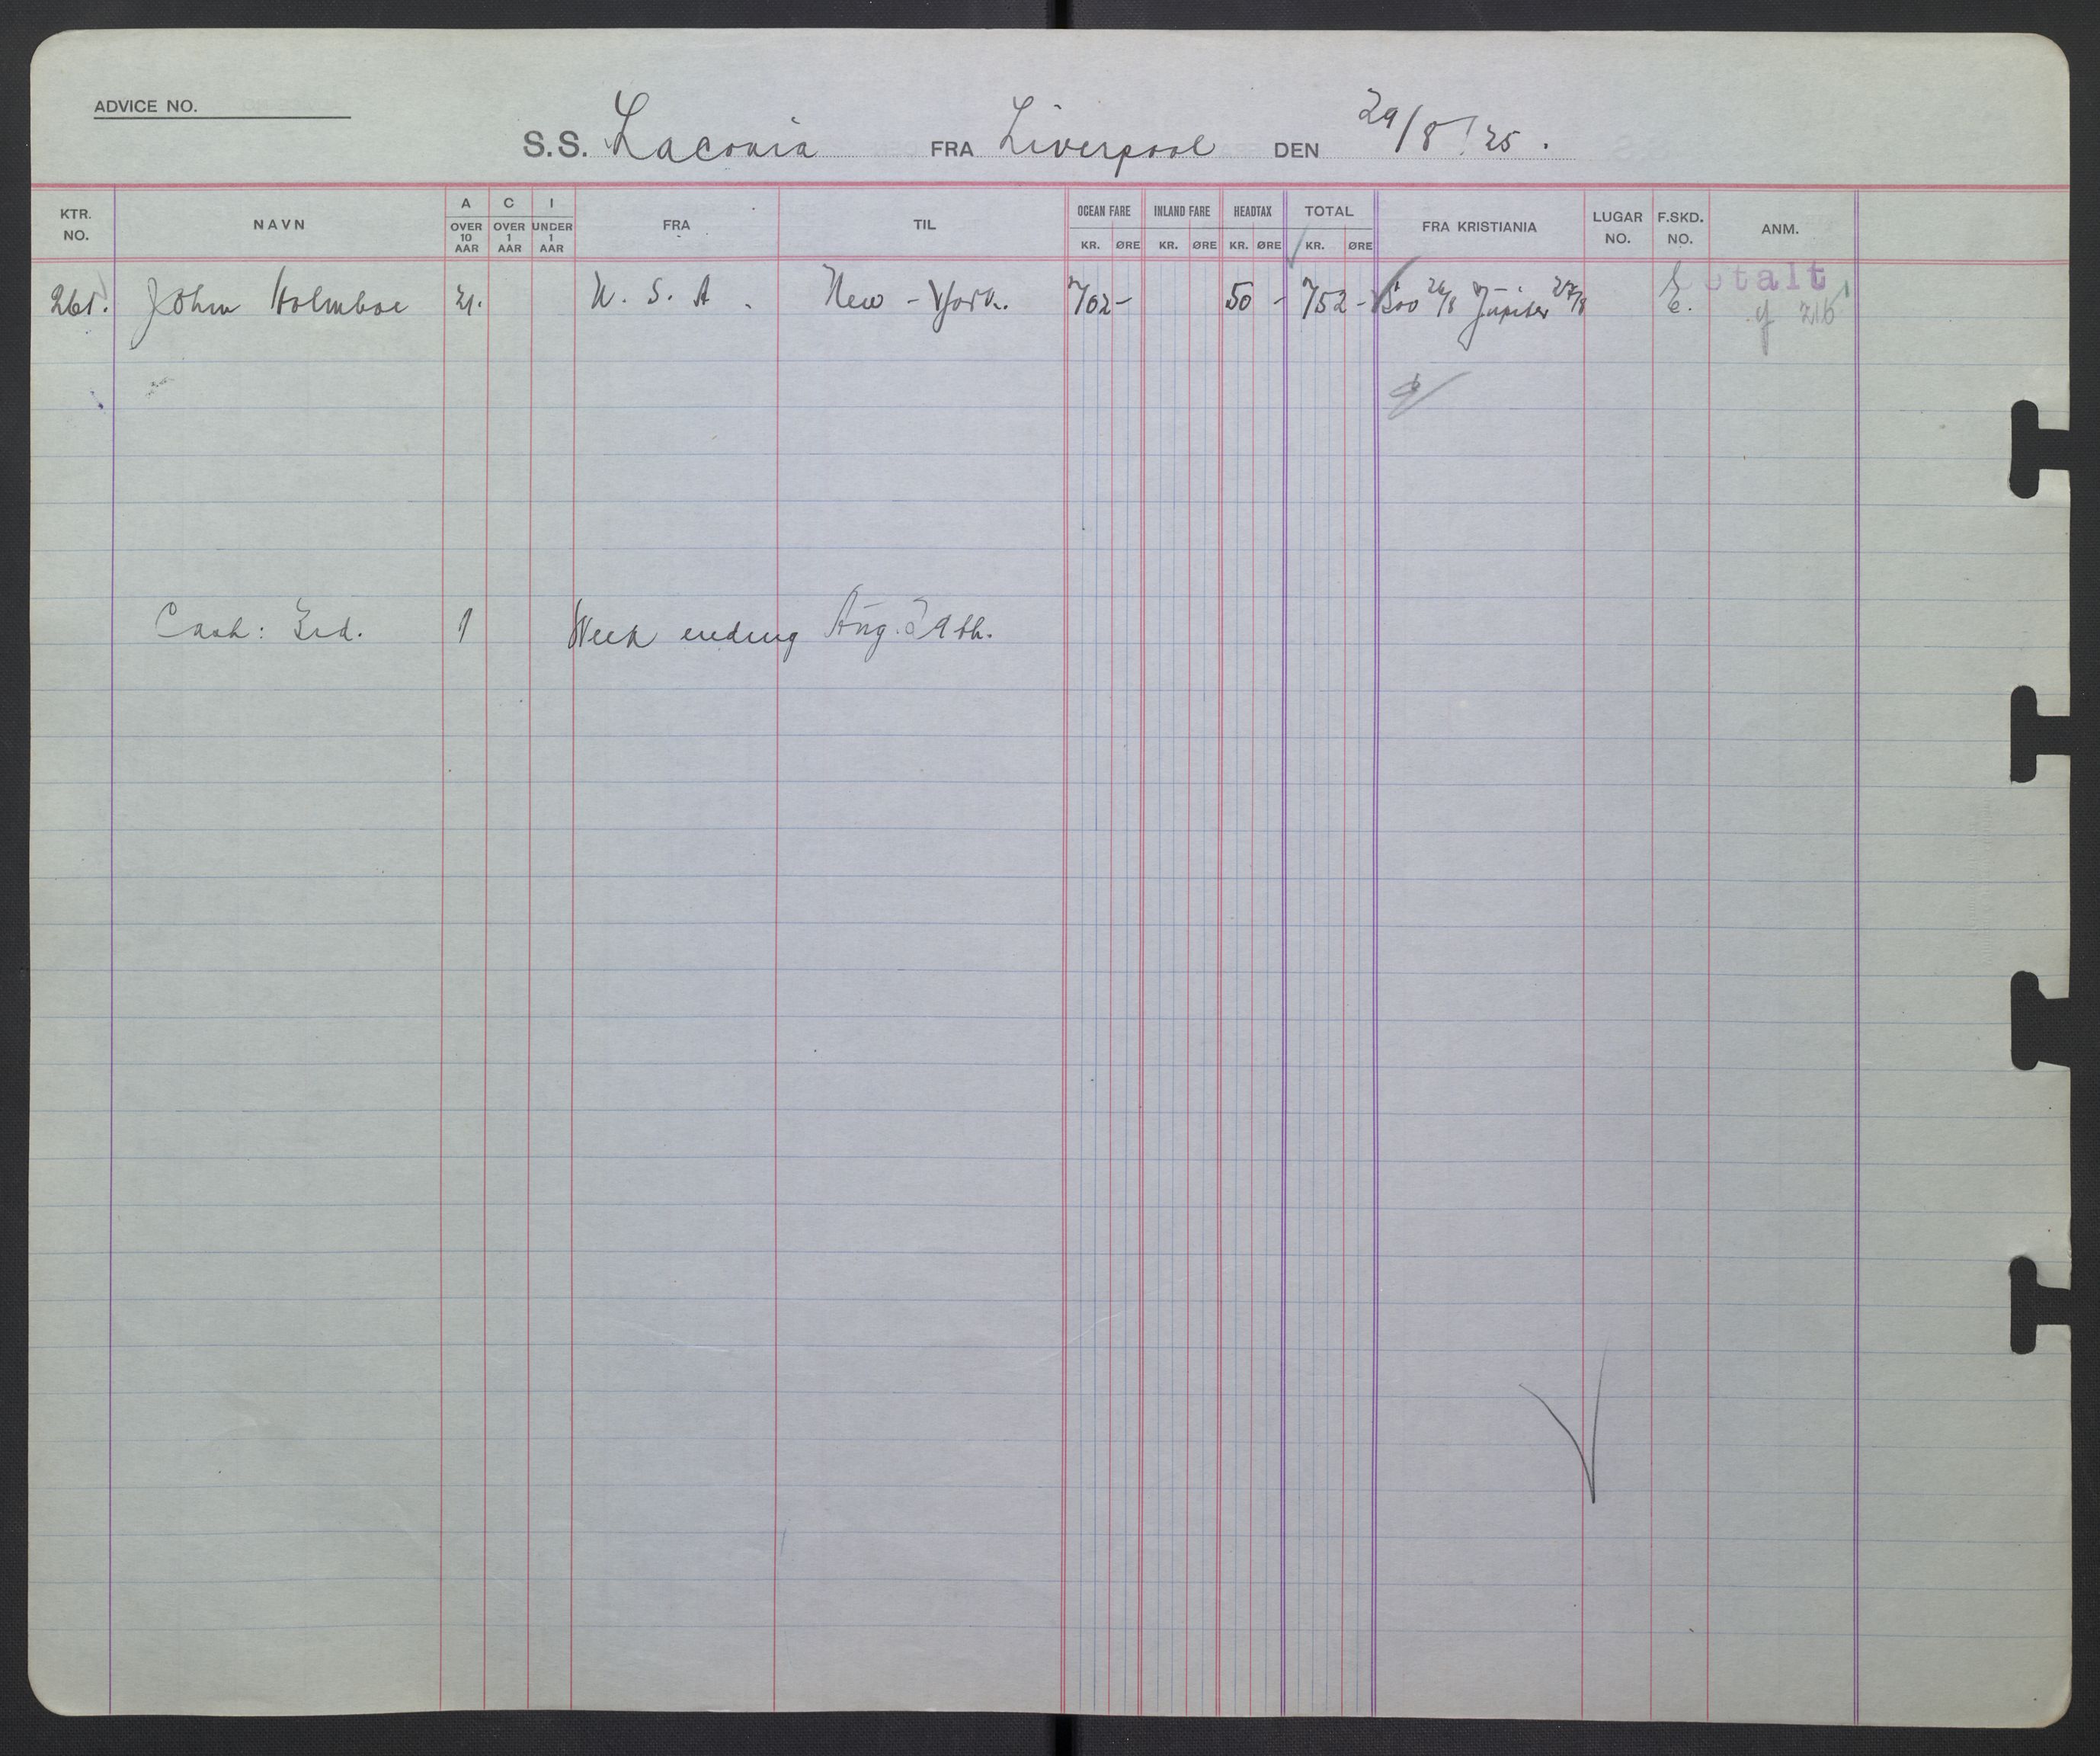 ADVICE NO.
S.S. Laconia FRA Liverpool DEN 29/8/25.
KTR. NO. NAVN A OVER 10 AAR C OVER 1 AAR I UNDER 1 AAR FRA TIL OCEAN FARE KR. ØRE INLAND FARE KR. ØRE HEADTAX KR. ØRE TOTAL KR. ØRE FRA KRISTIANIA LUGAR NO. F.SKD. NO. ANM.
261. John Holmboe 21. U. S. A. New-York. 702- 50- 752- 26/8 Jupiter 27/8 E. talt
216
Cash: 3rd. 1 Week ending Aug. 29th.